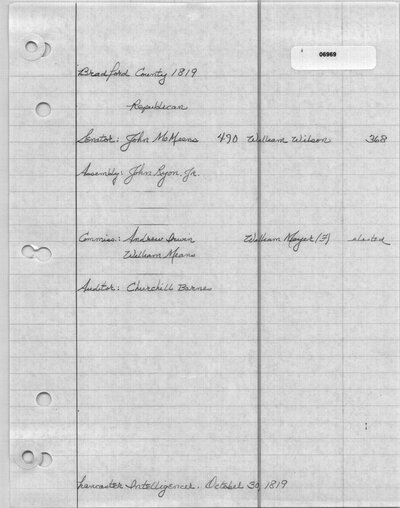 06969
Bradford County 1819
Republican
Senator: John McMeens 490 William Wilson 368
Assembly: John Ryon, Jr.
Commiss: Andrew Irwin William Myer (3) elected
William Means
Auditor: Churchill Barnes
Lancaster Intelligencer. October 30, 1819